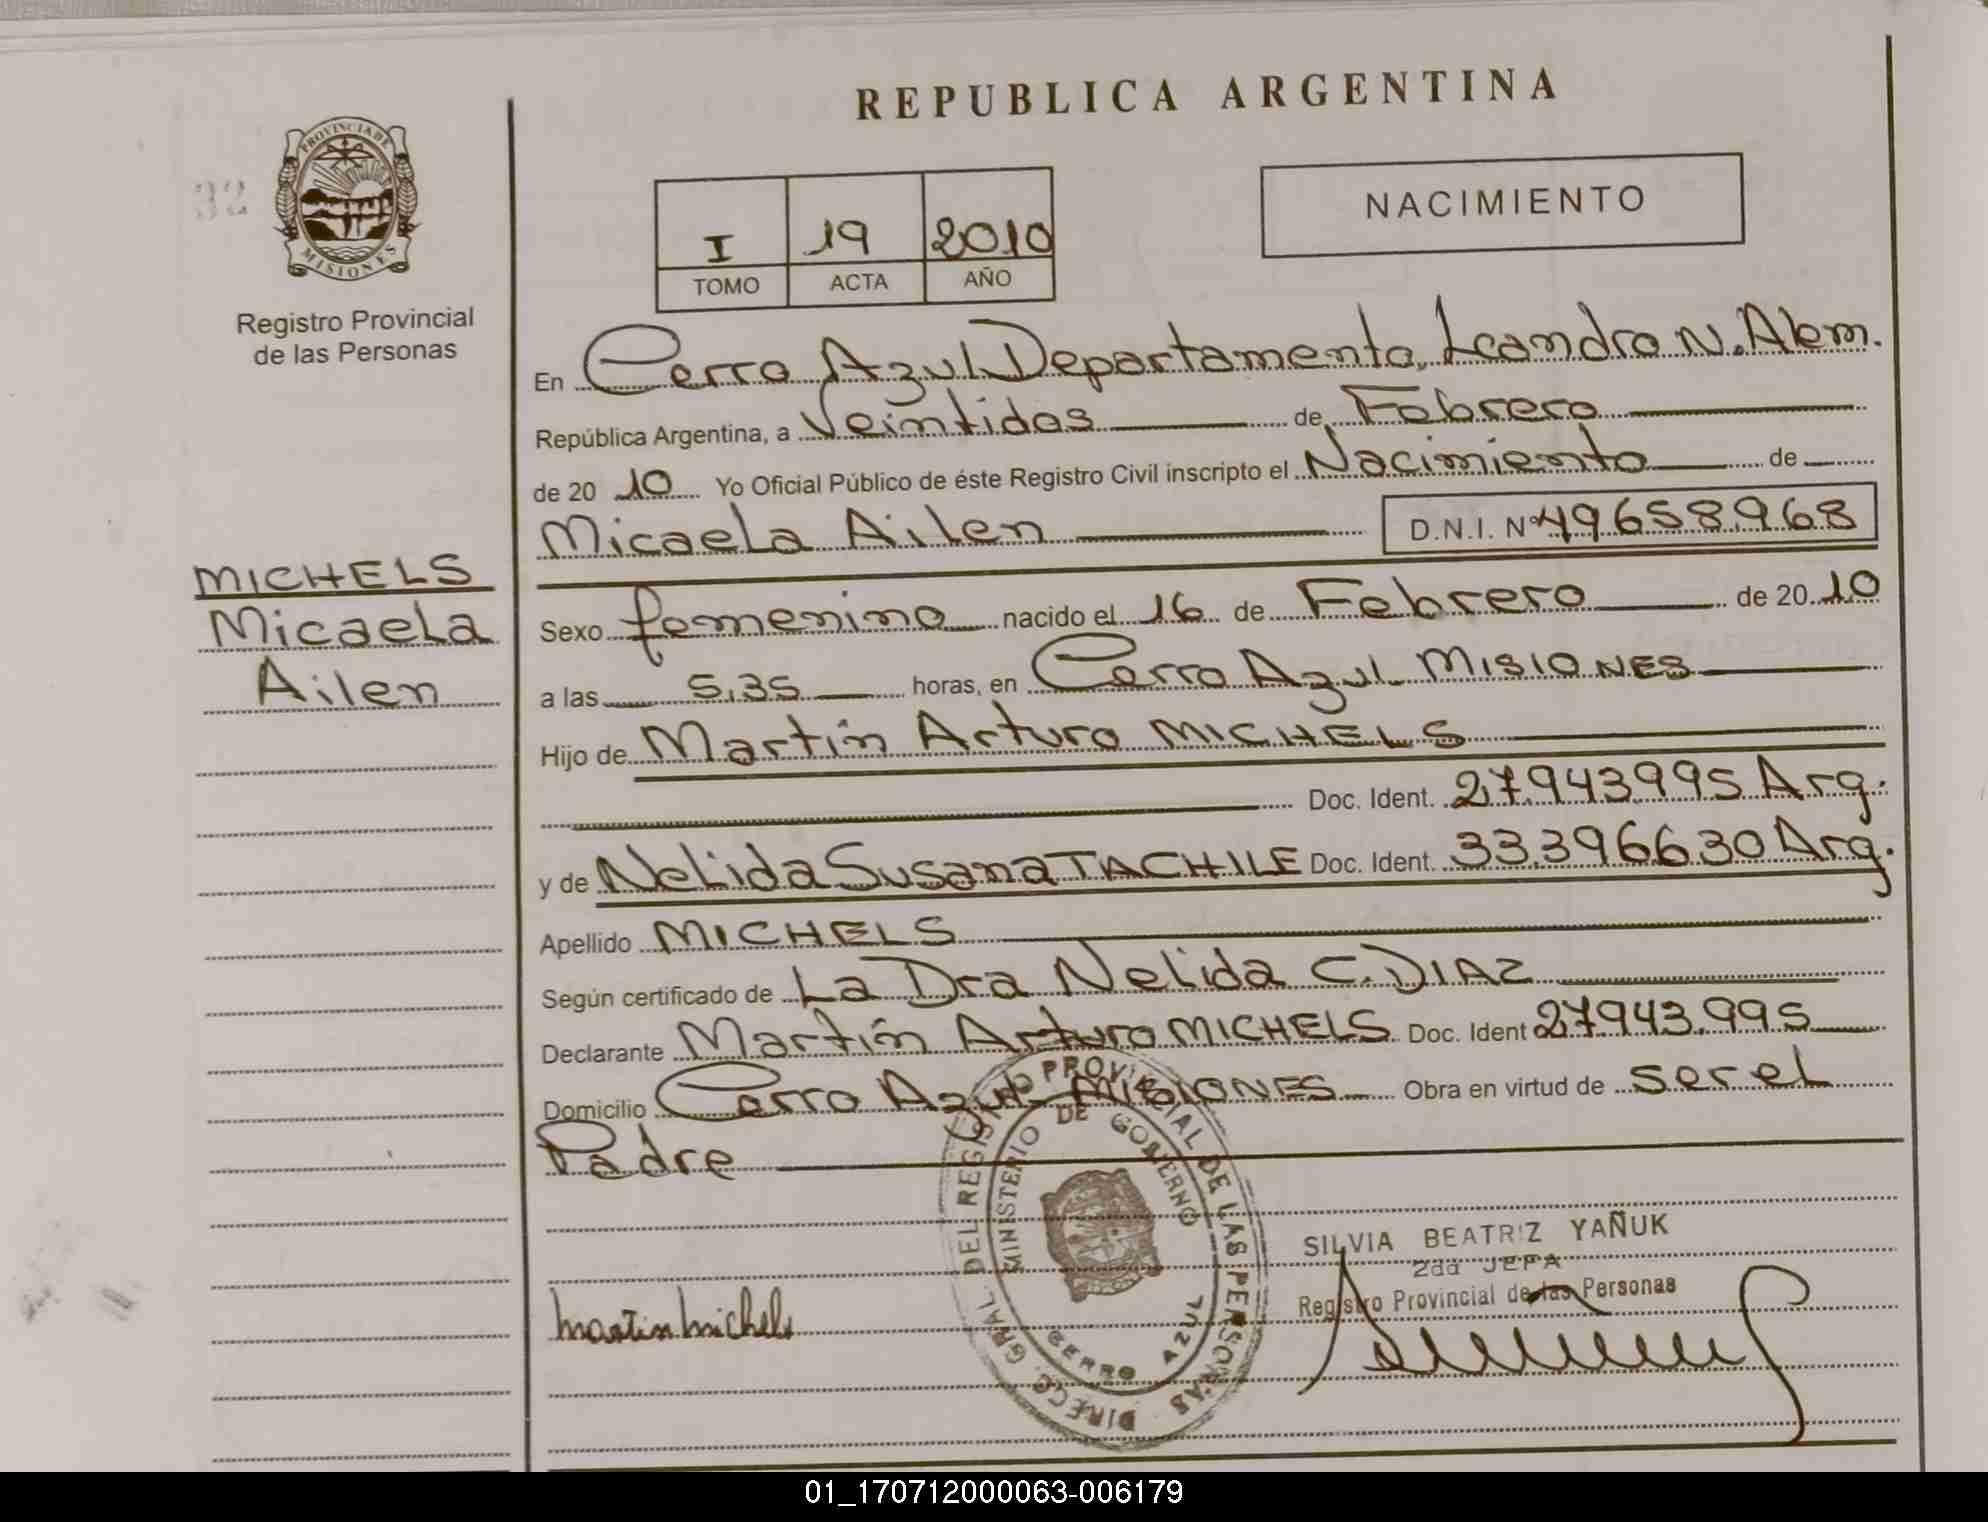 REPUBLICA ARGENTINA
PROVINCIA DE
MISIONES
32
Registro Provincial
de las Personas
NACIMIENTO
I 19 2010
TOMO ACTA AÑO
En Cerro Azul Departamento, Leandro N. Alem.
República Argentina, a Veintidos de Febrero
de 20 10 Yo Oficial Público de éste Registro Civil inscripto el Nacimiento de
Micaela Ailen D.N.I. Nº 49658968
MICHELS
Micaela
Ailen
Sexo femenino nacido el 16 de Febrero de 20 10
a las 5,35 horas, en Cerro Azul MISIONES
Hijo de Martín Arturo MICHELS
Doc. Ident. 27943995 Arg.
y de Nelida Susana TACHILE Doc. Ident. 33396630 Arg.
Apellido MICHELS
Según certificado de La Dra Nelida C. DIAZ
Declarante Martín Arturo MICHELS Doc. Ident 27943.995
Domicilio Cerro Azul MISIONES Obra en virtud de ser el
Padre
DIRECC. GRAL. DEL REGISTRO PROVINCIAL DE LAS PERSONAS
MINISTERIO DE GOBIERNO
CERRO AZUL
SILVIA BEATRIZ YAÑUK
2da JEFA
Registro Provincial de las Personas
martin michels
01_170712000063-006179